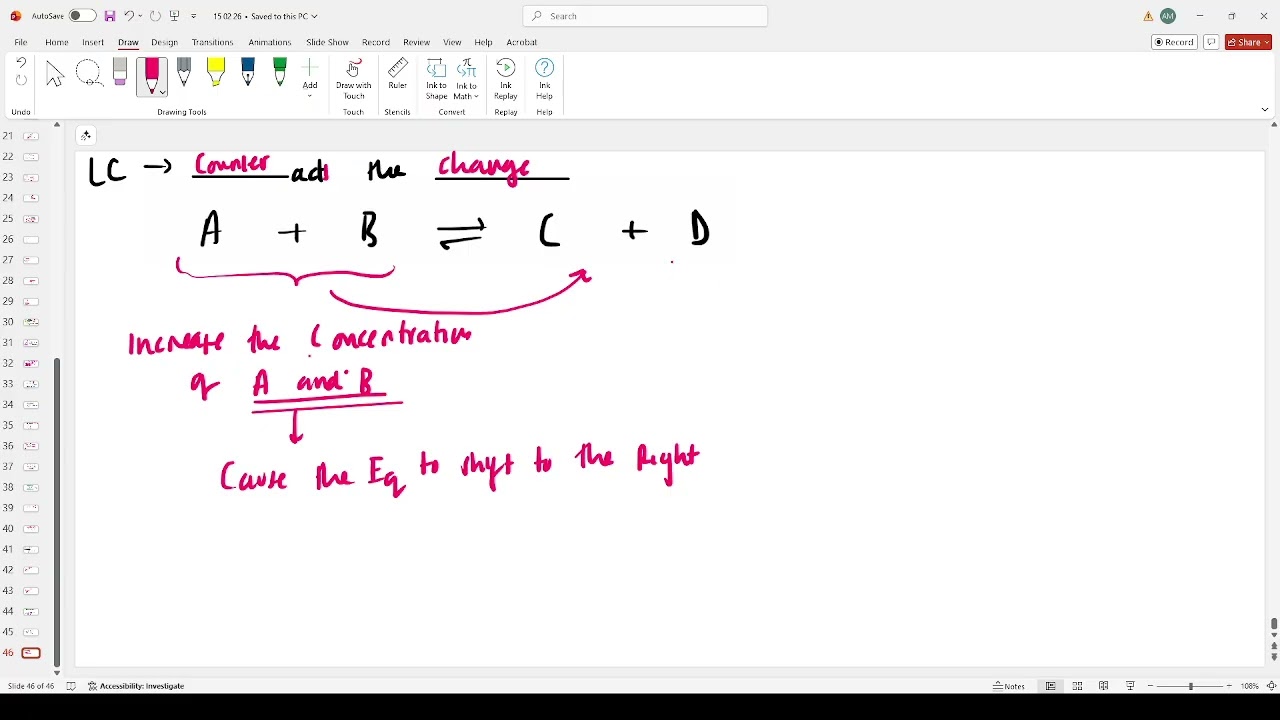 AutoSave Off 15 02.26 • Saved to this PC Search AM
File Home Insert Draw Design Transitions Animations Slide Show Record Review View Help Acrobat Record Share
Undo Add Draw with Touch Ruler Ink to Shape Ink to Math Ink Replay Ink Help
Undo Drawing Tools Touch Stencils Convert Replay Help
21
22
23
24
25
26
28
29
30
31
32
33
34
35
36
37
38
39
40
41
42
43
44
45
46
LC → Counter acts the change
A + B ⇌ C + D
Increase the Concentration
of A and B
Cause the Eq to shift to the Right
Slide 46 of 46 Accessibility: Investigate Notes 108%